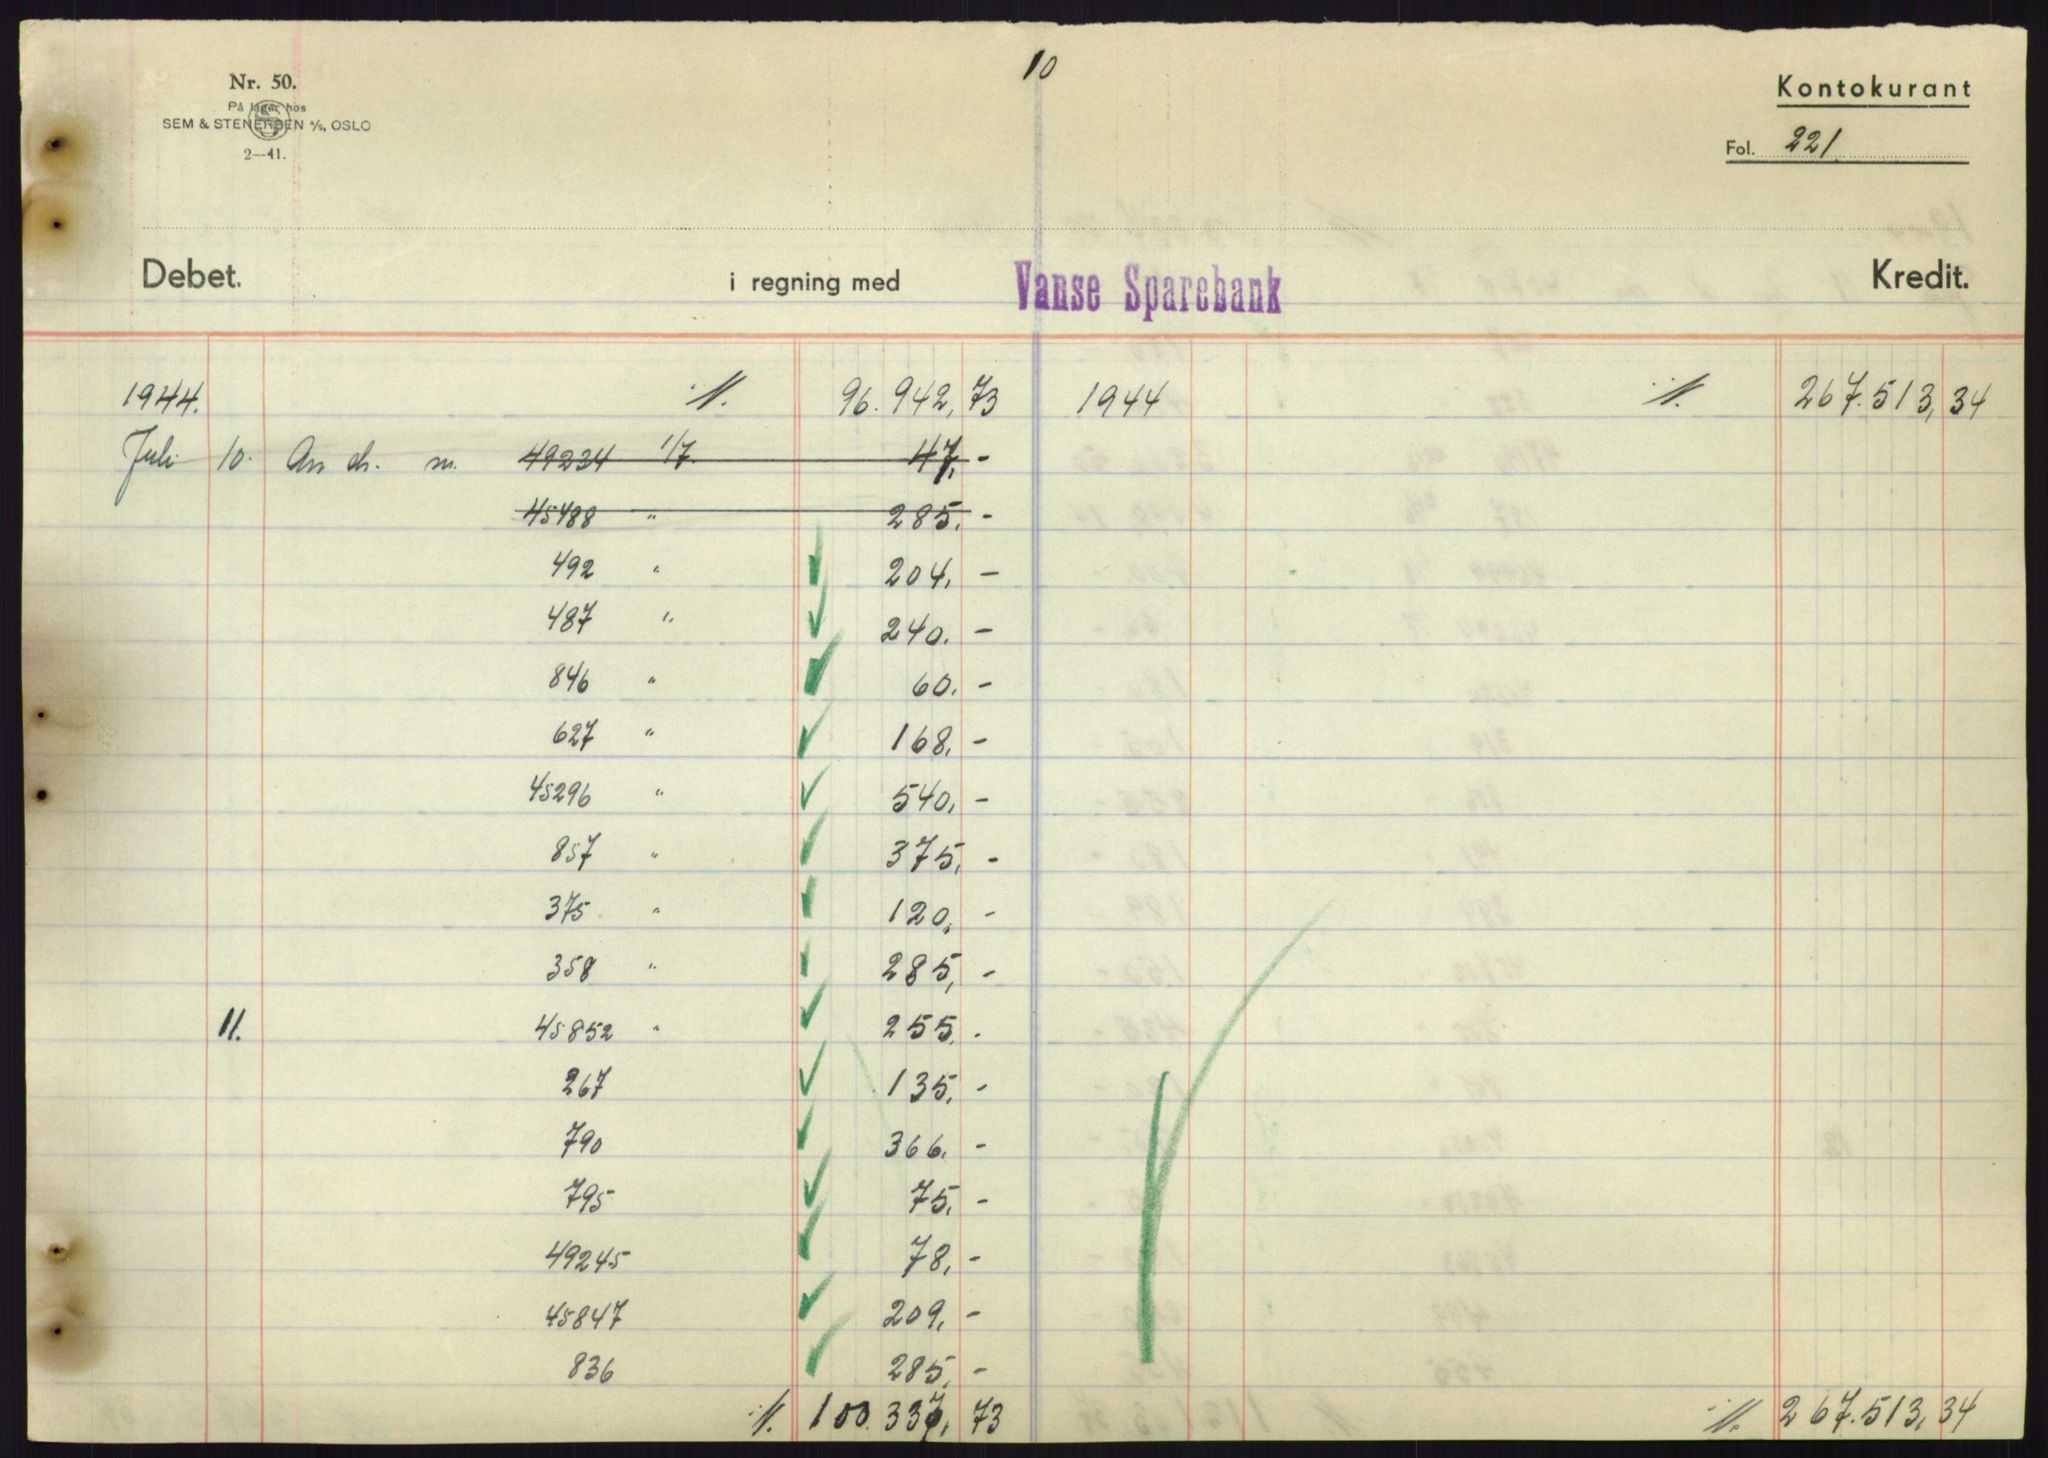 10
Nr. 50.
På lager hos
SEM & STENERSEN A/S, OSLO
2—41.
Kontokurant
Fol. 221
Debet. i regning med Vanse Sparebank Kredit.
1944. ·/·. 96.942,73 1944 ·/·. 267.513,34
Juli 10. An ch. nr. 49234 1/7. 47,-
45488 " 285,-
492 " 204,-
487 " 240,-
846 " 60,-
627 " 168,-
45296 " 540,-
857 " 375,-
375 " 120,-
358 " 285,-
11. 45852 " 255.-
267 135,-
790 366,-
795 75,-
49245 78,-
45847 209,-
836 285,-
·/·. 100.337,73 ·/·. 267.513,34